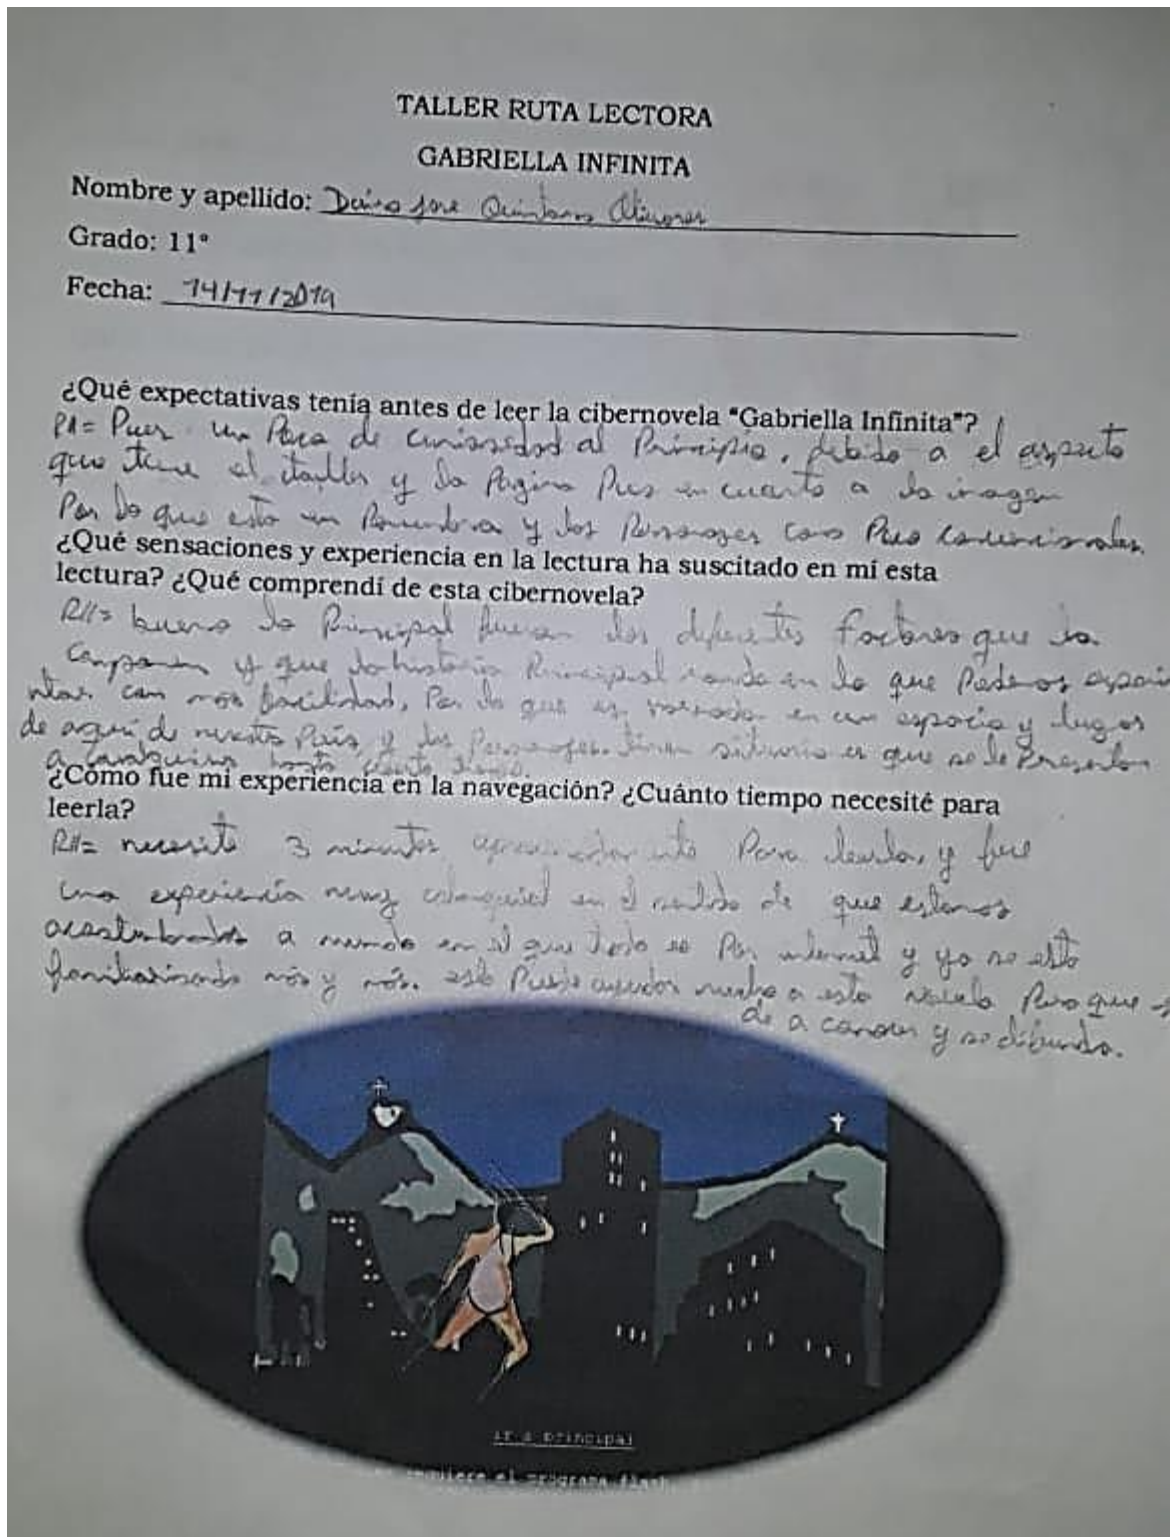 TALLER RUTA LECTORA
GABRIELLA INFINITA
Nombre y apellido: Jose
Grado: 11°
Fecha: 14/11/2019
¿Qué expectativas tenía antes de leer la cibernovela "Gabriella Infinita"?
Pues un Poco de curiosidad al Principio, debido a el aspecto
que tiene el taller y la Pagina Pues en cuanto a la imagen
Por lo que esta en y los Personajes
¿Qué sensaciones y experiencia en la lectura ha suscitado en mí esta
lectura? ¿Qué comprendí de esta cibernovela?
R//= bueno lo Principal fueron los diferentes factores que la
componen y que la historia Principal en lo que Podemos
con más facilidad, Por lo que es en un espacio y lugar
de aquí de nuestro País, y los Personajes tienen que se le Presentan
a
¿Cómo fue mi experiencia en la navegación? ¿Cuánto tiempo necesité para
leerla?
R//= necesite 3 minutos aproximadamente Para leerla, y fue
una experiencia muy en el sentido de que estamos
a mundo en el que todo es Por internet y ya se está
familiarizando más y más. esto Puede ayudar mucho a esta novela Para que se
de a conocer y se difunda.
ir a principal
requiere el programa flash